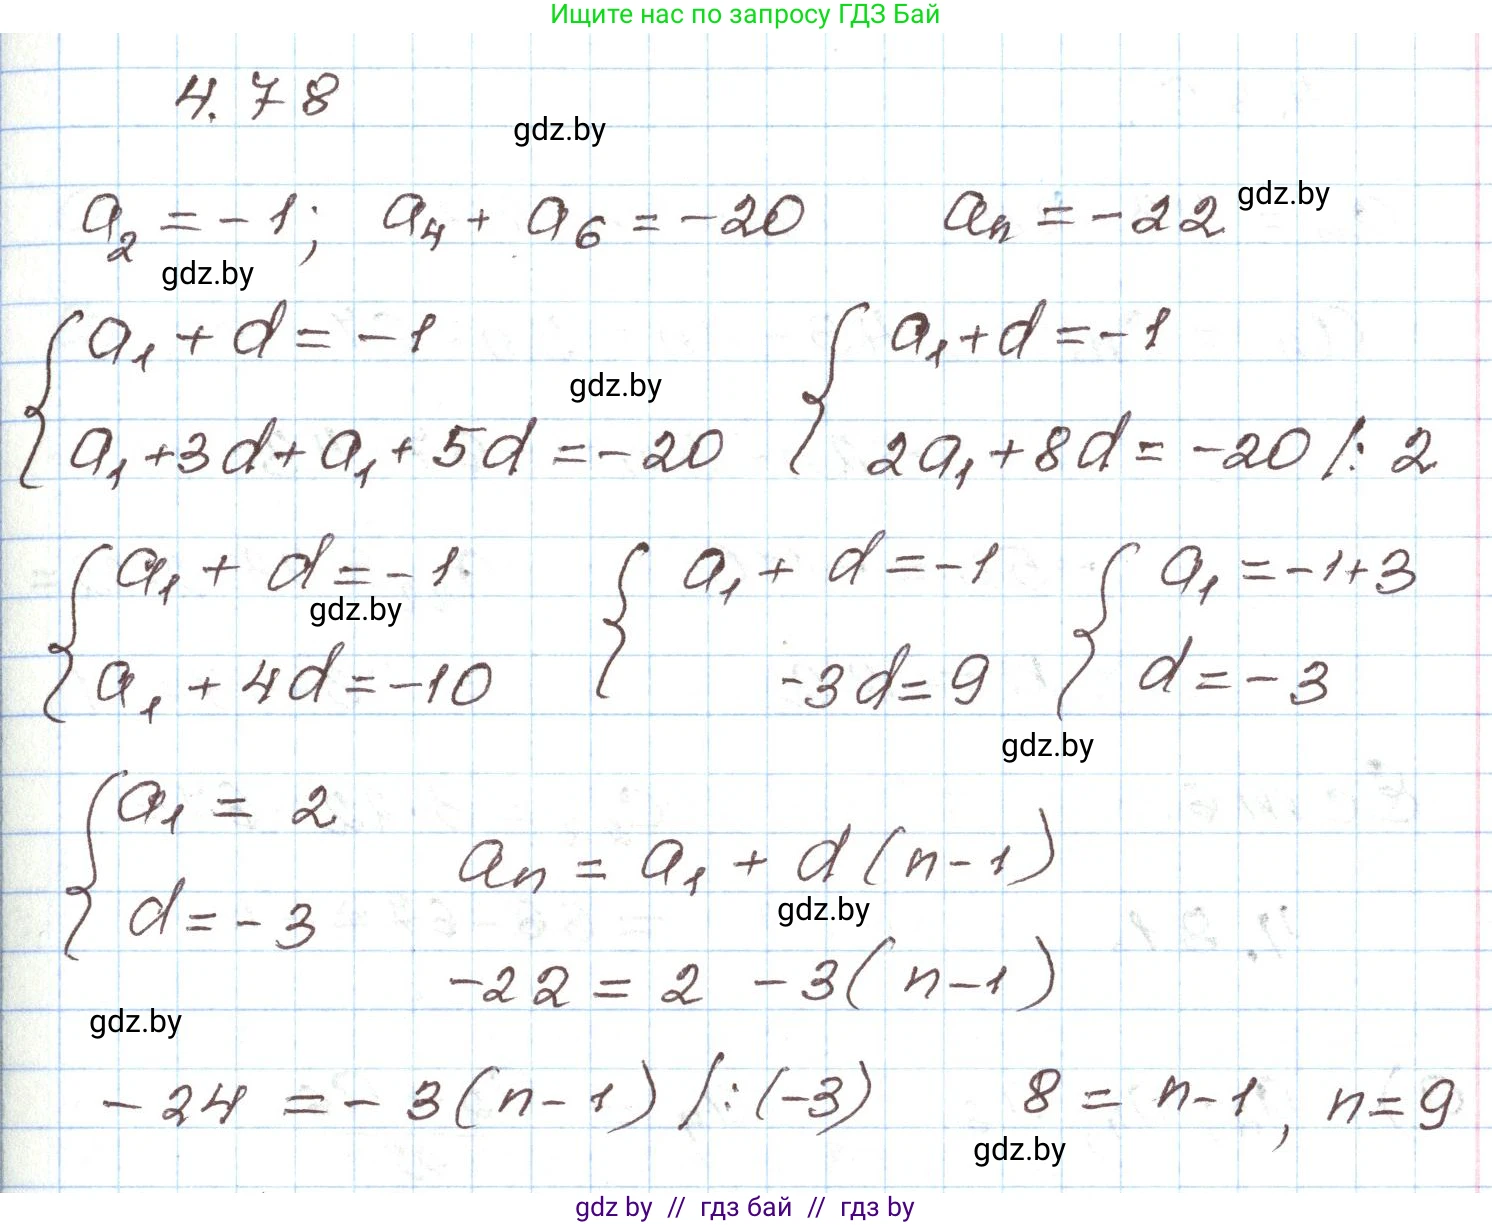 Ищите нас по запросу ГДЗ Бай
4.78
gdz.by
a₂ = -1; a₄ + a₆ = -20 aₙ = -22
gdz.by
gdz.by
{ a₁ + d = -1
a₁ + 3d + a₁ + 5d = -20
gdz.by
{ a₁ + d = -1
2a₁ + 8d = -20 /: 2
{ a₁ + d = -1
a₁ + 4d = -10
gdz.by
{ a₁ + d = -1
-3d = 9
{ a₁ = -1+3
d = -3
gdz.by
{ a₁ = 2
d = -3
aₙ = a₁ + d (n-1)
gdz.by
-22 = 2 - 3(n-1)
gdz.by
-24 = -3(n-1) /: (-3) 8 = n-1, n=9
gdz.by
gdz by // гдз бай // гдз by